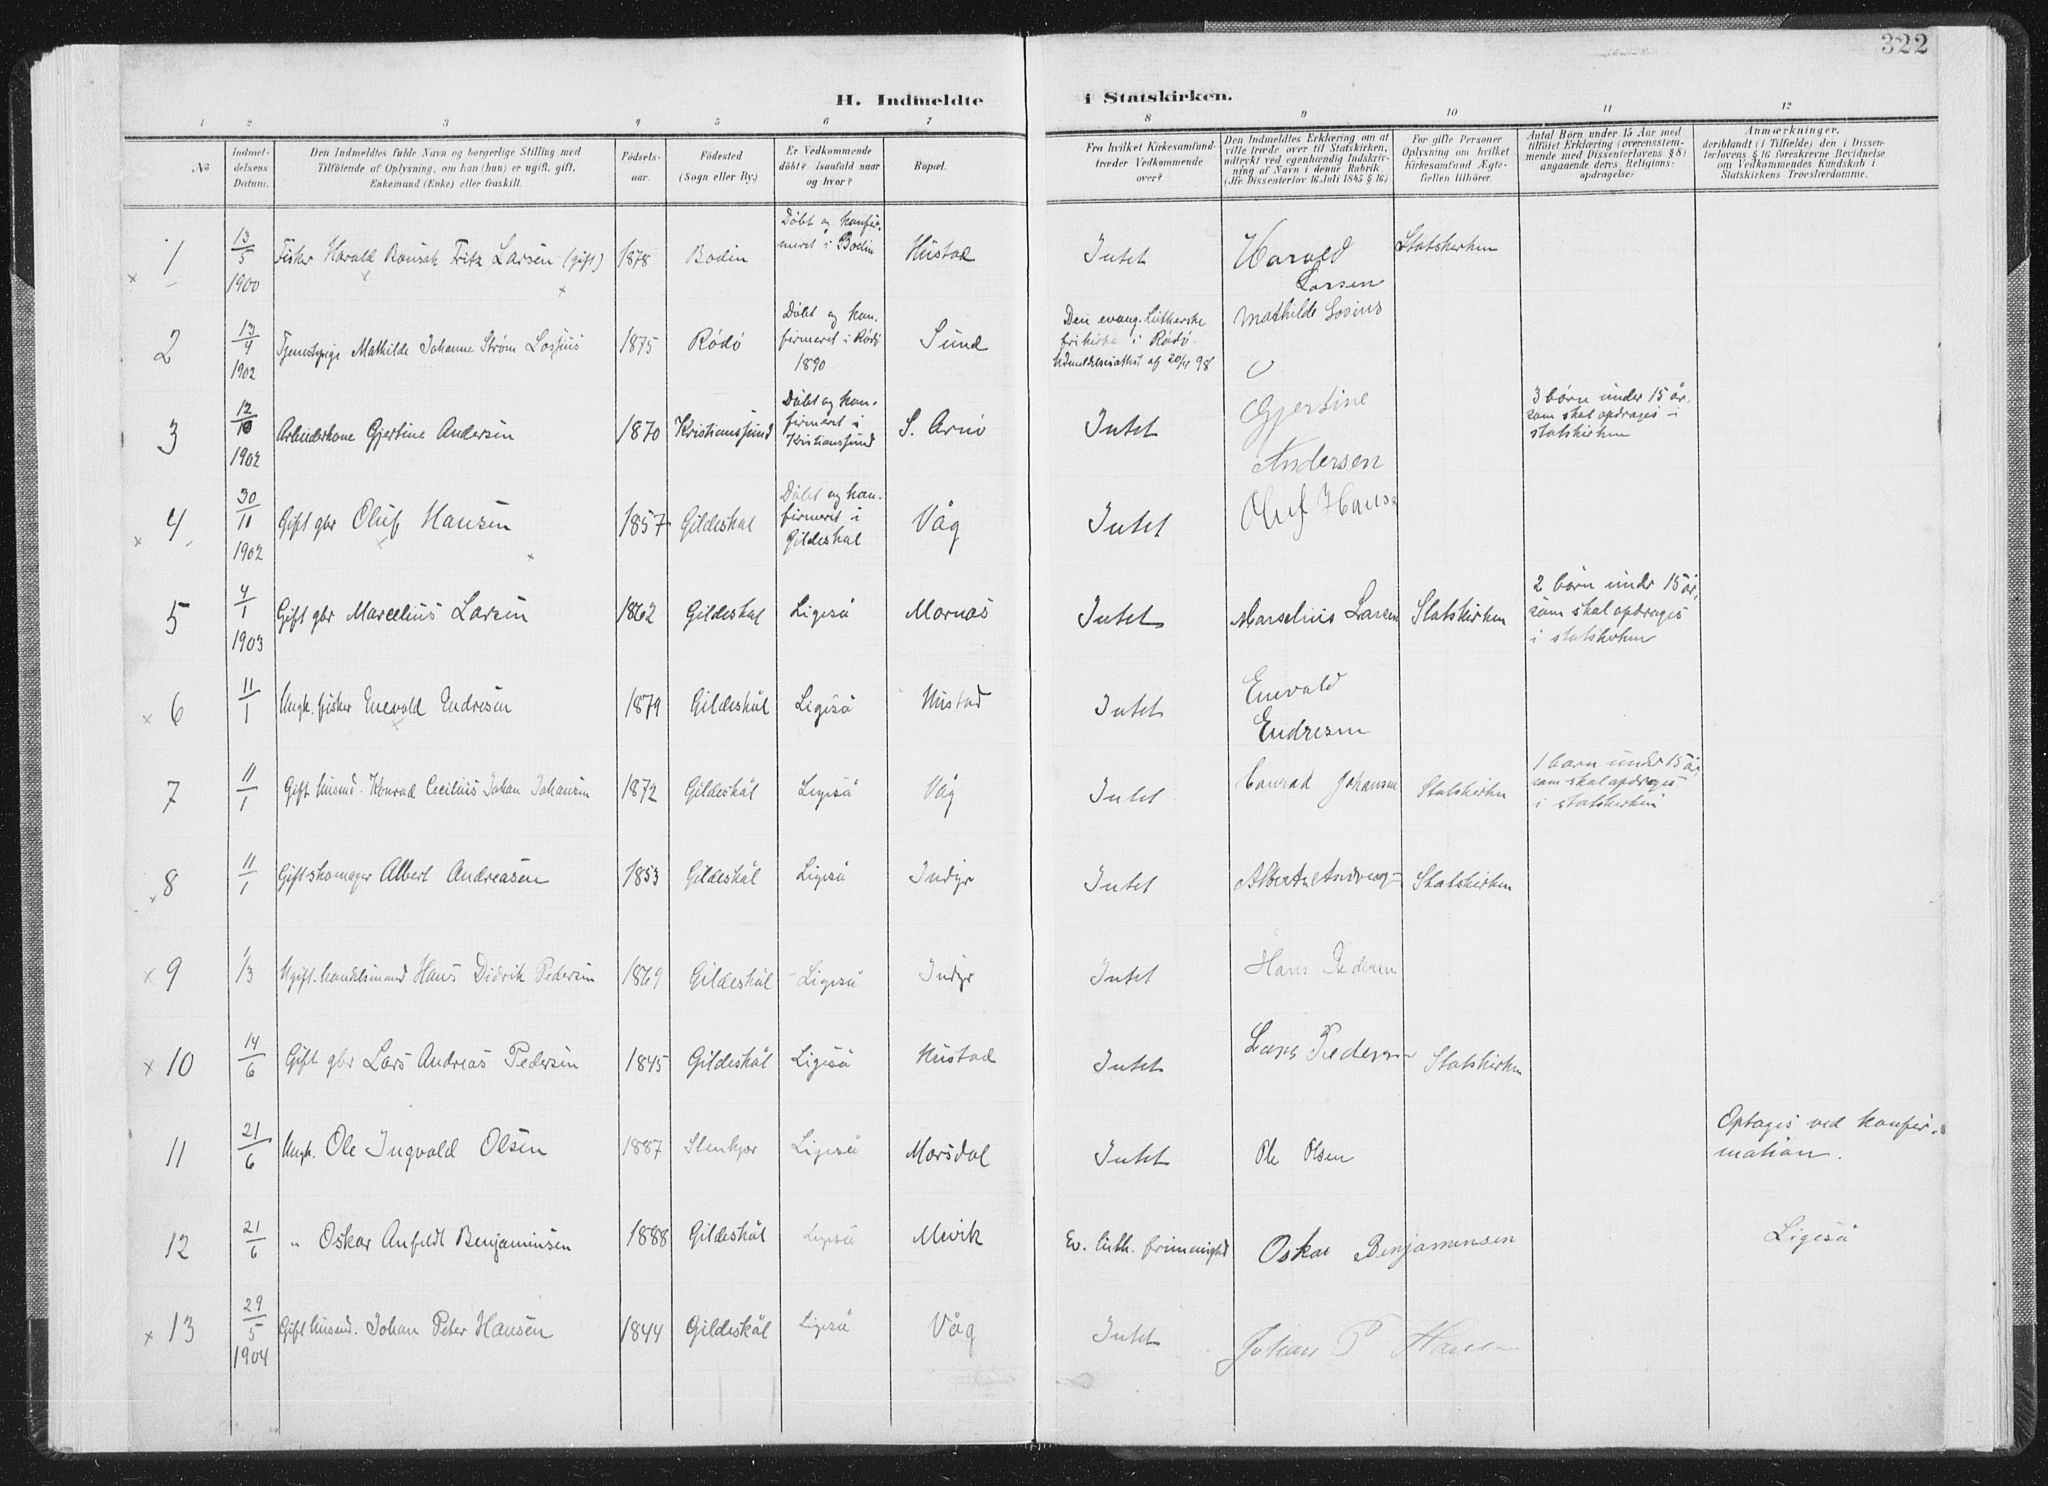 322
H. Indmeldte i Statskirken.
1 2 3 4 5 6 7 8 9 10 11 12
No
Indmeldelsens Datum.
Den Indmeldtes fulde Navn og borgerlige Stilling med
Tilföiende af Oplysning, om han (hun) er ugift, gift,
Enkemand (Enke) eller fraskilt.
Födselsaar.
Födested
(Sogn eller By.)
Er Vedkommende
döbt? isaafald naar
og hvor?
Bopæl.
Fra hvilket Kirkesamfund
træder Vedkommende
over?
Den Indmeldtes Erklæring om at
ville træde over til Statskirken,
udtrykt ved egenhændig Indskrivning
af Navn i denne Rubrik.
(Jfr. Dissenterlov 16 Juli 1845 § 16)
For gifte Personer
Oplysning om hvilket
Kirkesamfund Ægtefællen
tilhörer
Antal Börn under 15 Aar med
tilföiet Erklæring (overensstemmende
med Dissenterlovens § 8)
angaaende deres Religionsopdragelse:
Anmærkninger,
deriblandt (i Tilfælde) den i Dissenterlovens
§ 16 foreskrevne Bevidnelse
om Vedkommendes Kundskab i
Statskirkens Troeslærdomme.
1 13/5 1900 Fisker Harald Fritz Larsen (gift) 1878 Bodin Döbt og konfirmeret i Bodin Hustad Intet Harald Larsen Statskirken
2 13/4 1902 Tjenestepige Mathilde Johanne Strøm Lossius 1875 Rödö Döbt og konfirmeret i Rödö 1890 Sund Den evang. Lutherske frikirke i Rödö. Udmeldelsesattest af 20/4 98 Mathilde Losius
3 12/10 1902 Arbeiderkone Gjertine Andersen 1870 Kristianssund Döbt og konfirmeret i Kristianssund S. Arnö Intet Gjertine Andersen 3 börn under 15 år, som skal opdrages i statskirken
4 30/11 1902 Gift gbr Oluf Hansen 1857 Gildeskal Döbt og konfirmeret i Gildeskal Våg Intet Oluf Hansen
5 4/1 1903 Gift gbr Marcelius Larsen 1862 Gildeskal Ligeså Mornæs Intet Marselius Larsen Statskirken 2 börn under 15 år, som skal opdrages i statskirken
6 11/1 Ungk. fisker Enevald Endresen 1879 Gildeskål Ligeså Hustad Intet Enevald Endresen
7 11/1 Gift husmd. Konrad Cecilius Johan Johansen 1872 Gildeskål Ligeså Våg Intet Conrad Johansen Statskirken 1 barn under 15 år, som skal opdrages i statskirken
8 11/1 Gift skomager Albert Andreasen 1853 Gildeskål Ligeså Indyr Intet Statskirken
9 1/3 Ugift handelsmand Hans Didrik Pedersen 1869 Gildeskål Ligeså Indyr Intet Hans Pedersen
10 14/6 Gift gbr Lars Andreas Pedersen 1845 Gildeskål Ligeså Hustad Intet Lars Pedersen Statskirken
11 21/6 Ungk. Ole Ingvald Olsen 1887 Stenkjær Ligeså Morsdal Intet Ole Olsen Optages ved konfirmation.
12 21/6 " Oskar Anfeldt Benjaminsen 1888 Gildeskål Ligeså Mevik Ev. luth. frimenighed Oskar Benjamensen Ligeså
13 29/5 1904 Gift husmd. Johan Peter Hansen 1844 Gildeskål Ligeså Våg Intet Johan P Hansen